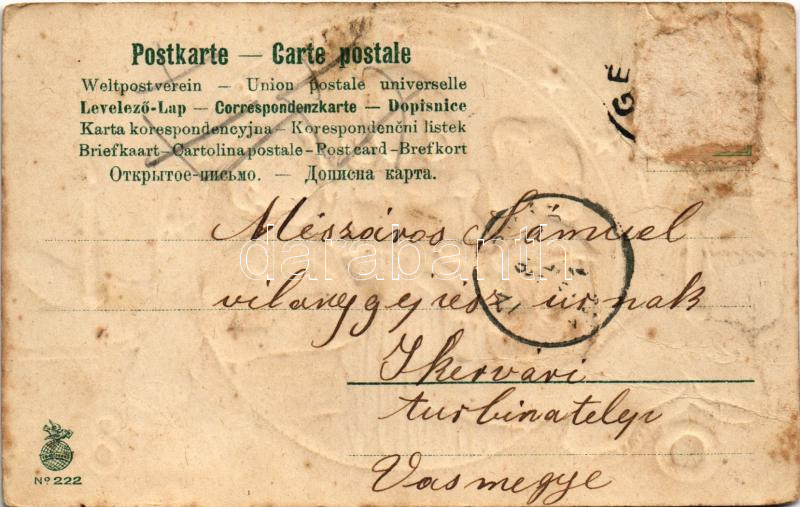 Postkarte — Carte postale
Weltpostverein — Union postale universelle
Levelező-Lap — Correspondenzkarte — Dopisnice
Karta korespondencyjna — Korespondenční lístek
Briefkaart — Cartolina postale - Post card - Brefkort
Открытое-письмо. — Дописна карта.
(GÉ
Mészáros Sámuel
vilanygepész urnak
Ikervári
turbinatelep
Vasmegye
darabanth
Nº 222